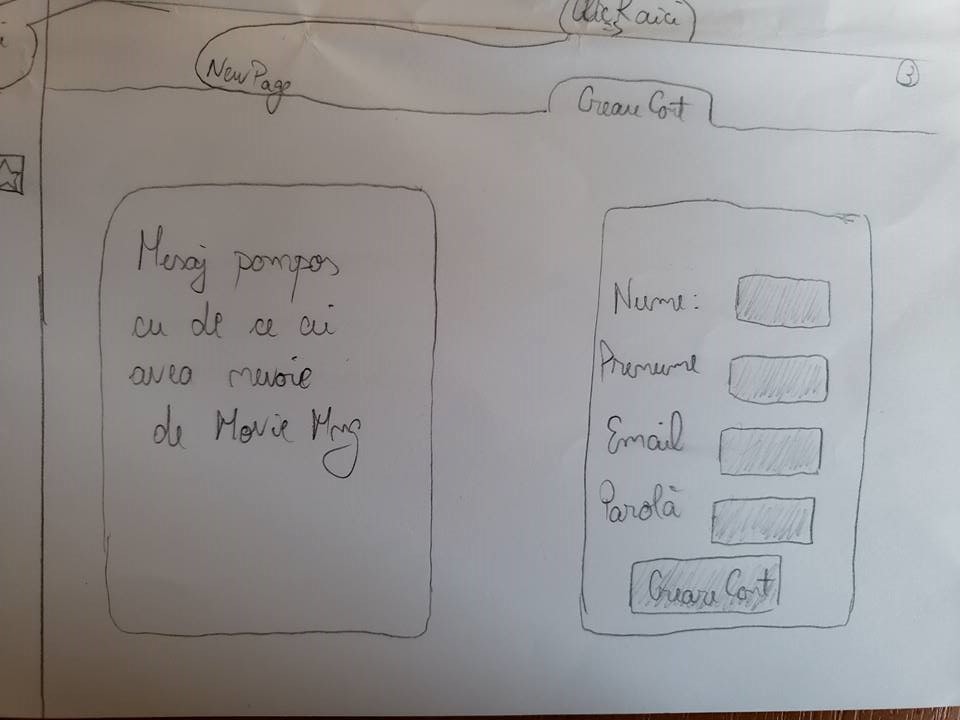 Click aici
New Page
3
Creare Cont
Mesaj pompos
cu de ce ai
avea nevoie
de Movie Mng
Nume:
Prenume
Email
Parolă
Creare Cont